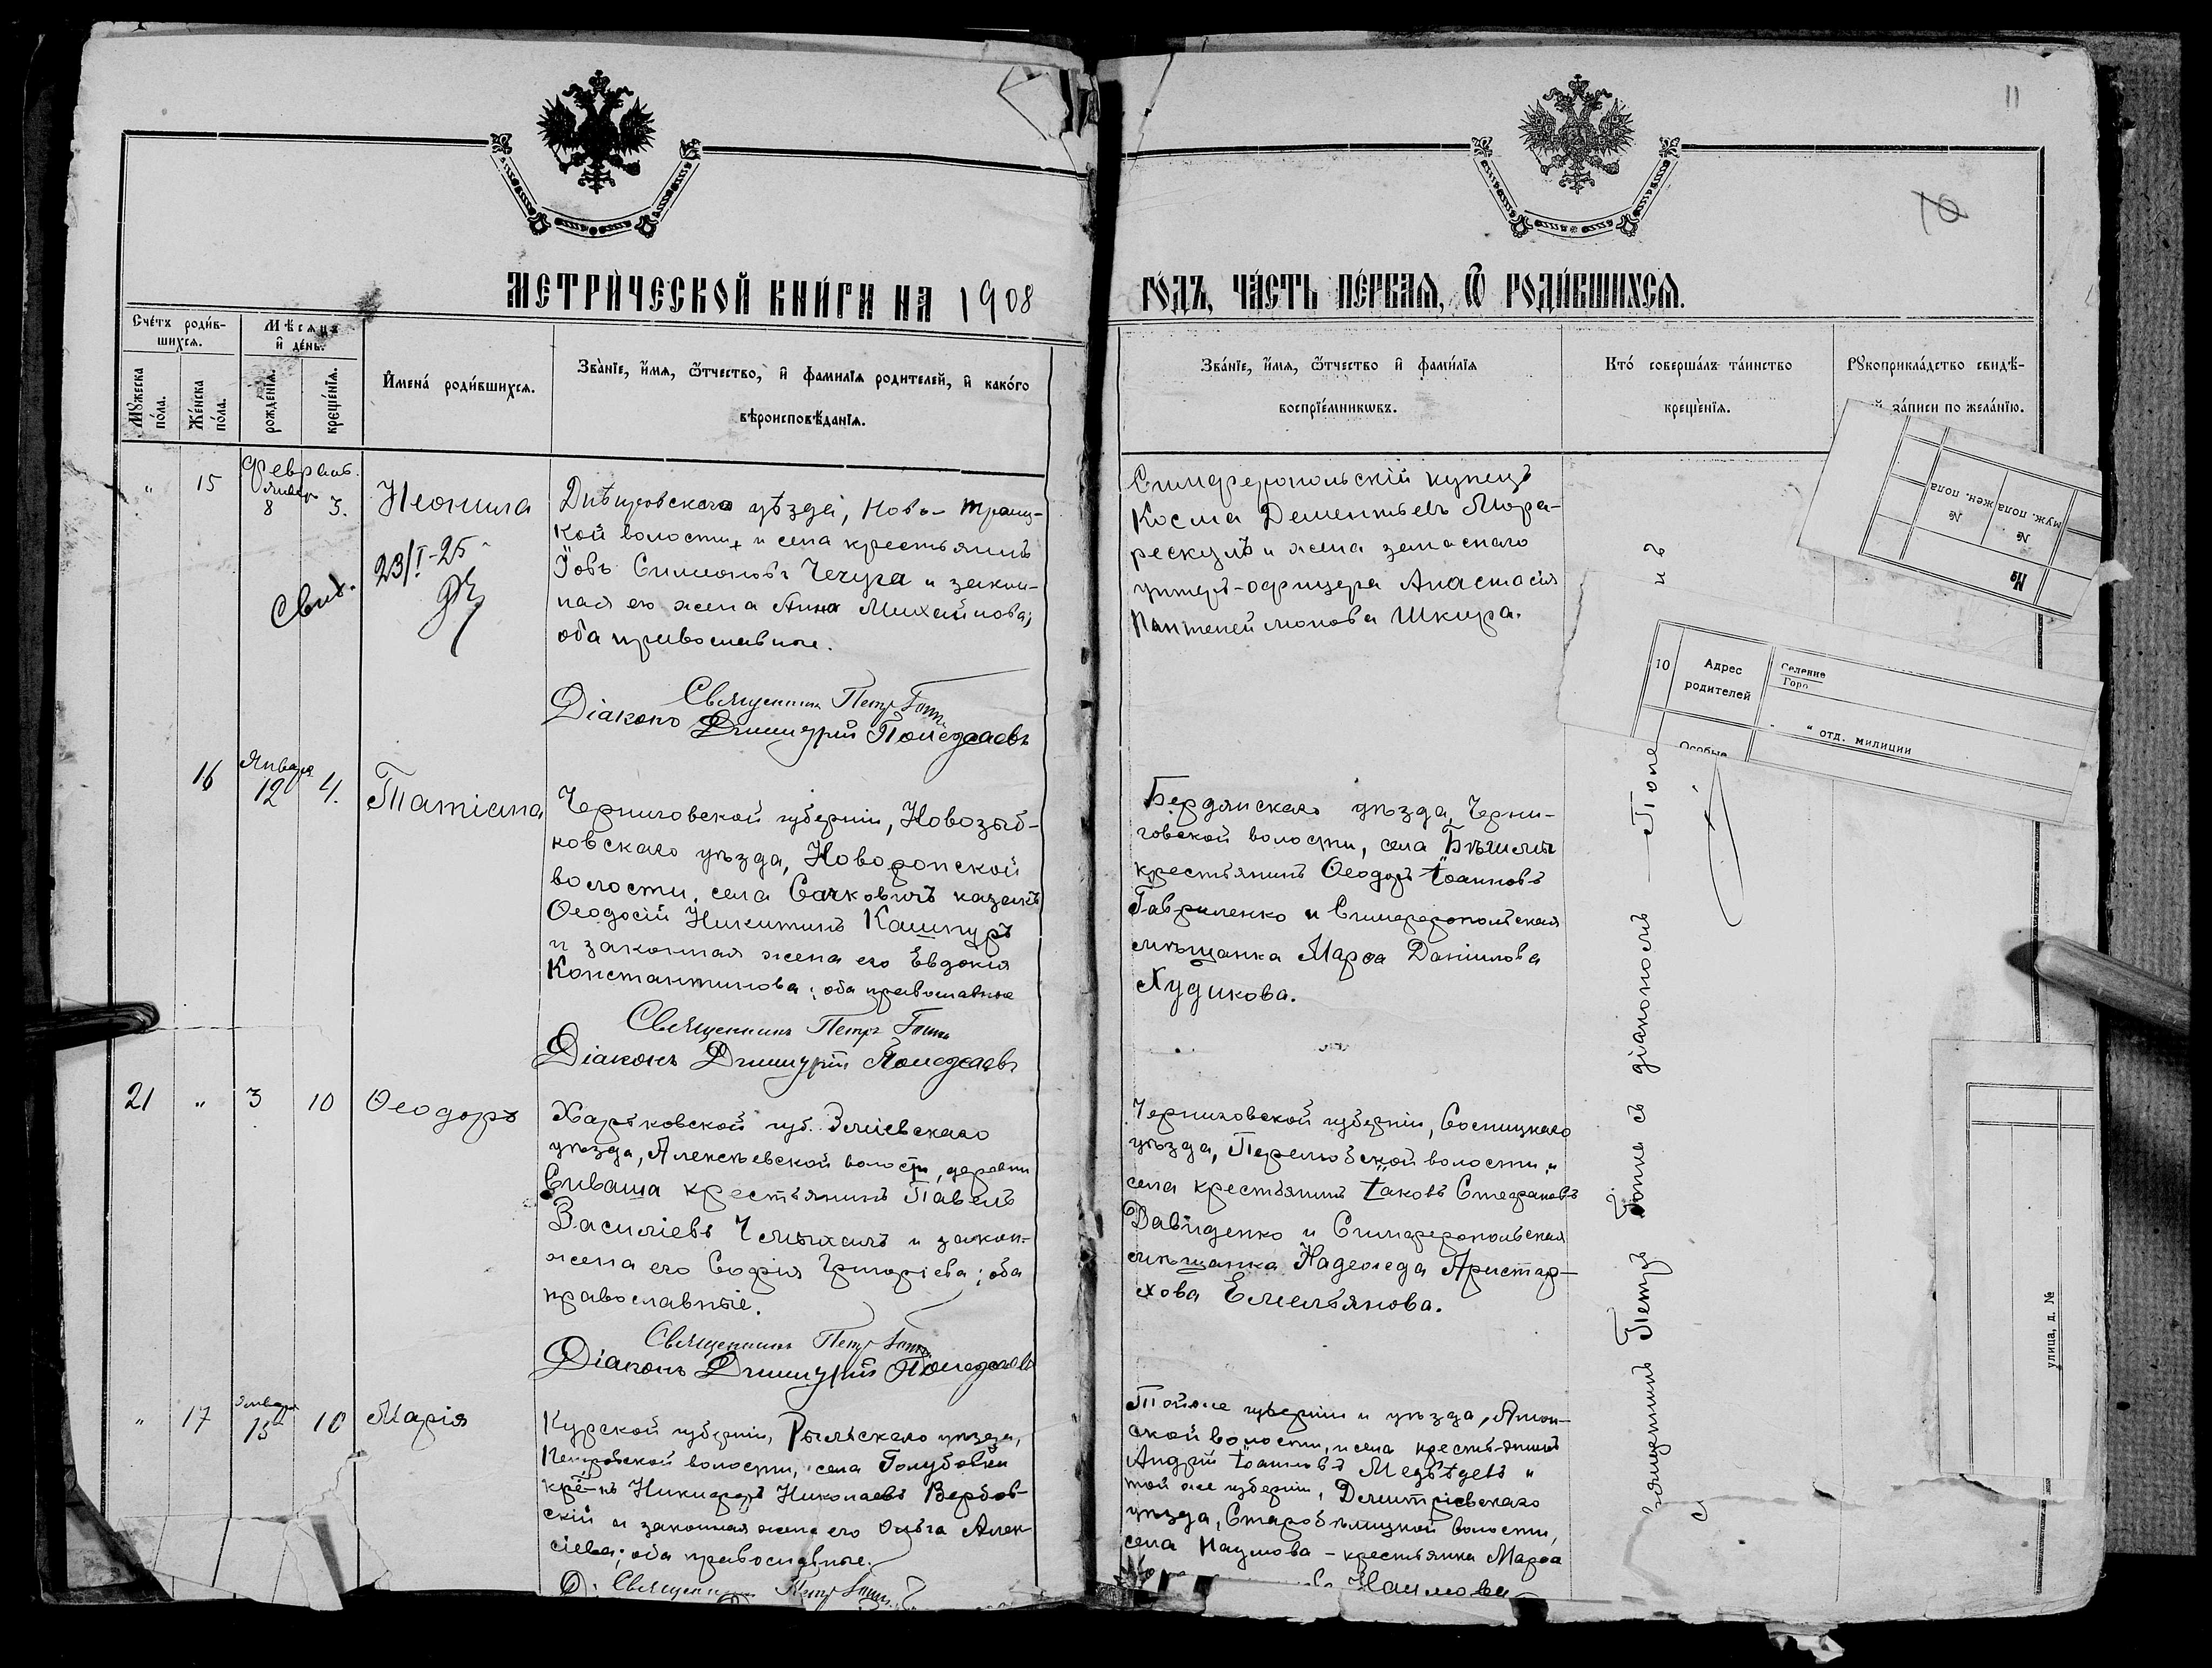 11
10
МЕТРИЧЕСКОЙ КНИГИ НА 1908
ГОДЪ, ЧАСТЬ ПЕРВАЯ, Ѡ РОДИВШИХСЯ.
Счетъ родив-
шихся.
Мѣсяцъ
и день.
Мꙋжеска
пола.
Женска
пола.
рожденія.
крещенія.
Имена родившихся.
Званіе, имя, ѿчество, и фамилія родителей, и какого
вѣроисповѣданія.
Званіе, имя, ѿчество и фамилія
воспріемникѡвъ.
Кто совершалъ таинство
крещенія.
Рꙋкоприкладство свидѣ-
записи по желанію.
" 15
Февраль.
Январь
8 3.
Неонила
Свид. 23/I-25
Днѣпровскаго уѣзда, Ново-Троиц-
кой волости и села крестьянинъ
Іовъ Симоновъ Чечура и закон-
ная его жена Анна Михайлова;
оба православные.
Священникъ Петръ
Діаконъ Димитрій
Симферопольскій купецъ
Косма Дементьевъ Мора-
рескулъ и жена запаснаго
унтеръ-офицера Анастасія
Пантелеймонова Шкира.
16
Января
12 4.
Татіана
Черниговской губерніи, Новозыб-
ковскаго уѣзда, Новоропской
волости, села Сачковичъ казакъ
Ѳеодосій Никитинъ Кашпуръ
и законная жена его Евдокія
Константинова; оба православные
Священникъ Петръ
Діаконъ Димитрій
Бердянскаго уѣзда, Черни-
говской волости, села
крестьянинъ Ѳеодоръ Іоанновъ
Гавриленко и Симферопольская
мѣщанка Марѳа Даніилова
Худикова.
21 " 3 10
Ѳеодоръ
Харьковской губ. Зміевскаго
уѣзда, Алексѣевской волости, деревни
Сиваша крестьянинъ Павелъ
Василіевъ и закон-
жена его Софія Григоріева; оба
православные.
Священникъ Петръ
Діаконъ Димитрій
Черниговской губерніи, Сосницкаго
уѣзда, Перелюбской волости и
села крестьянинъ Іаковъ Стефановъ
Давиденко и Симферопольская
мѣщанка Надежда Аристар-
хова Емельянова.
" 17
Января
15 10
Марія
Курской губерніи, Рыльскаго уѣзда,
волости, села Голубовки
кр-нъ Никифоръ Николаевъ Вербов-
скій и законная жена его Ольга Алек-
сіева; оба православные.
Священникъ Петръ
Той же губерніи и уѣзда,
ской волости, и села крестьянинъ
Андрій Іоанновъ Медвѣдевъ и
той же губерніи, Дмитріевскаго
уѣзда, волости,
села Наумова - крестьянка Марѳа
Наумова
Священникъ Петръ съ діакономъ
№
муж. пола
№
жен. пола
№
10
Адрес
родителей
Селение
Горо
" отд. милиции
Особые
улица, д. №